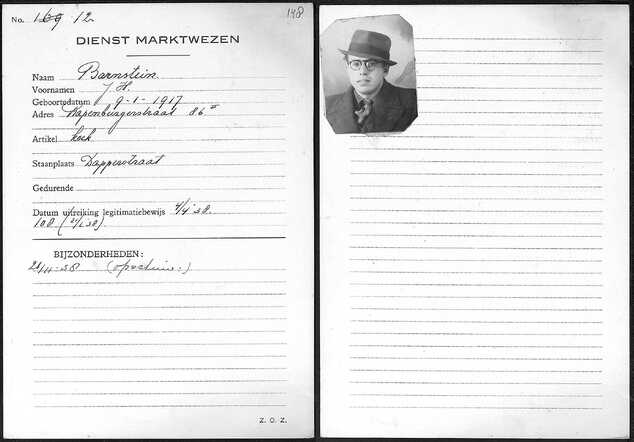 No. 169 12. 148
DIENST MARKTWEZEN
Naam Barnstein
Voornamen J. H.
Geboortedatum 9-1-1917
Adres Rapenburgerstraat 86 II
Artikel koek
Staanplaats Dapperstraat
Gedurende
Datum uitreiking legitimatiebewijs 4/4 '38.
108
BIJZONDERHEDEN:
Z. O. Z.